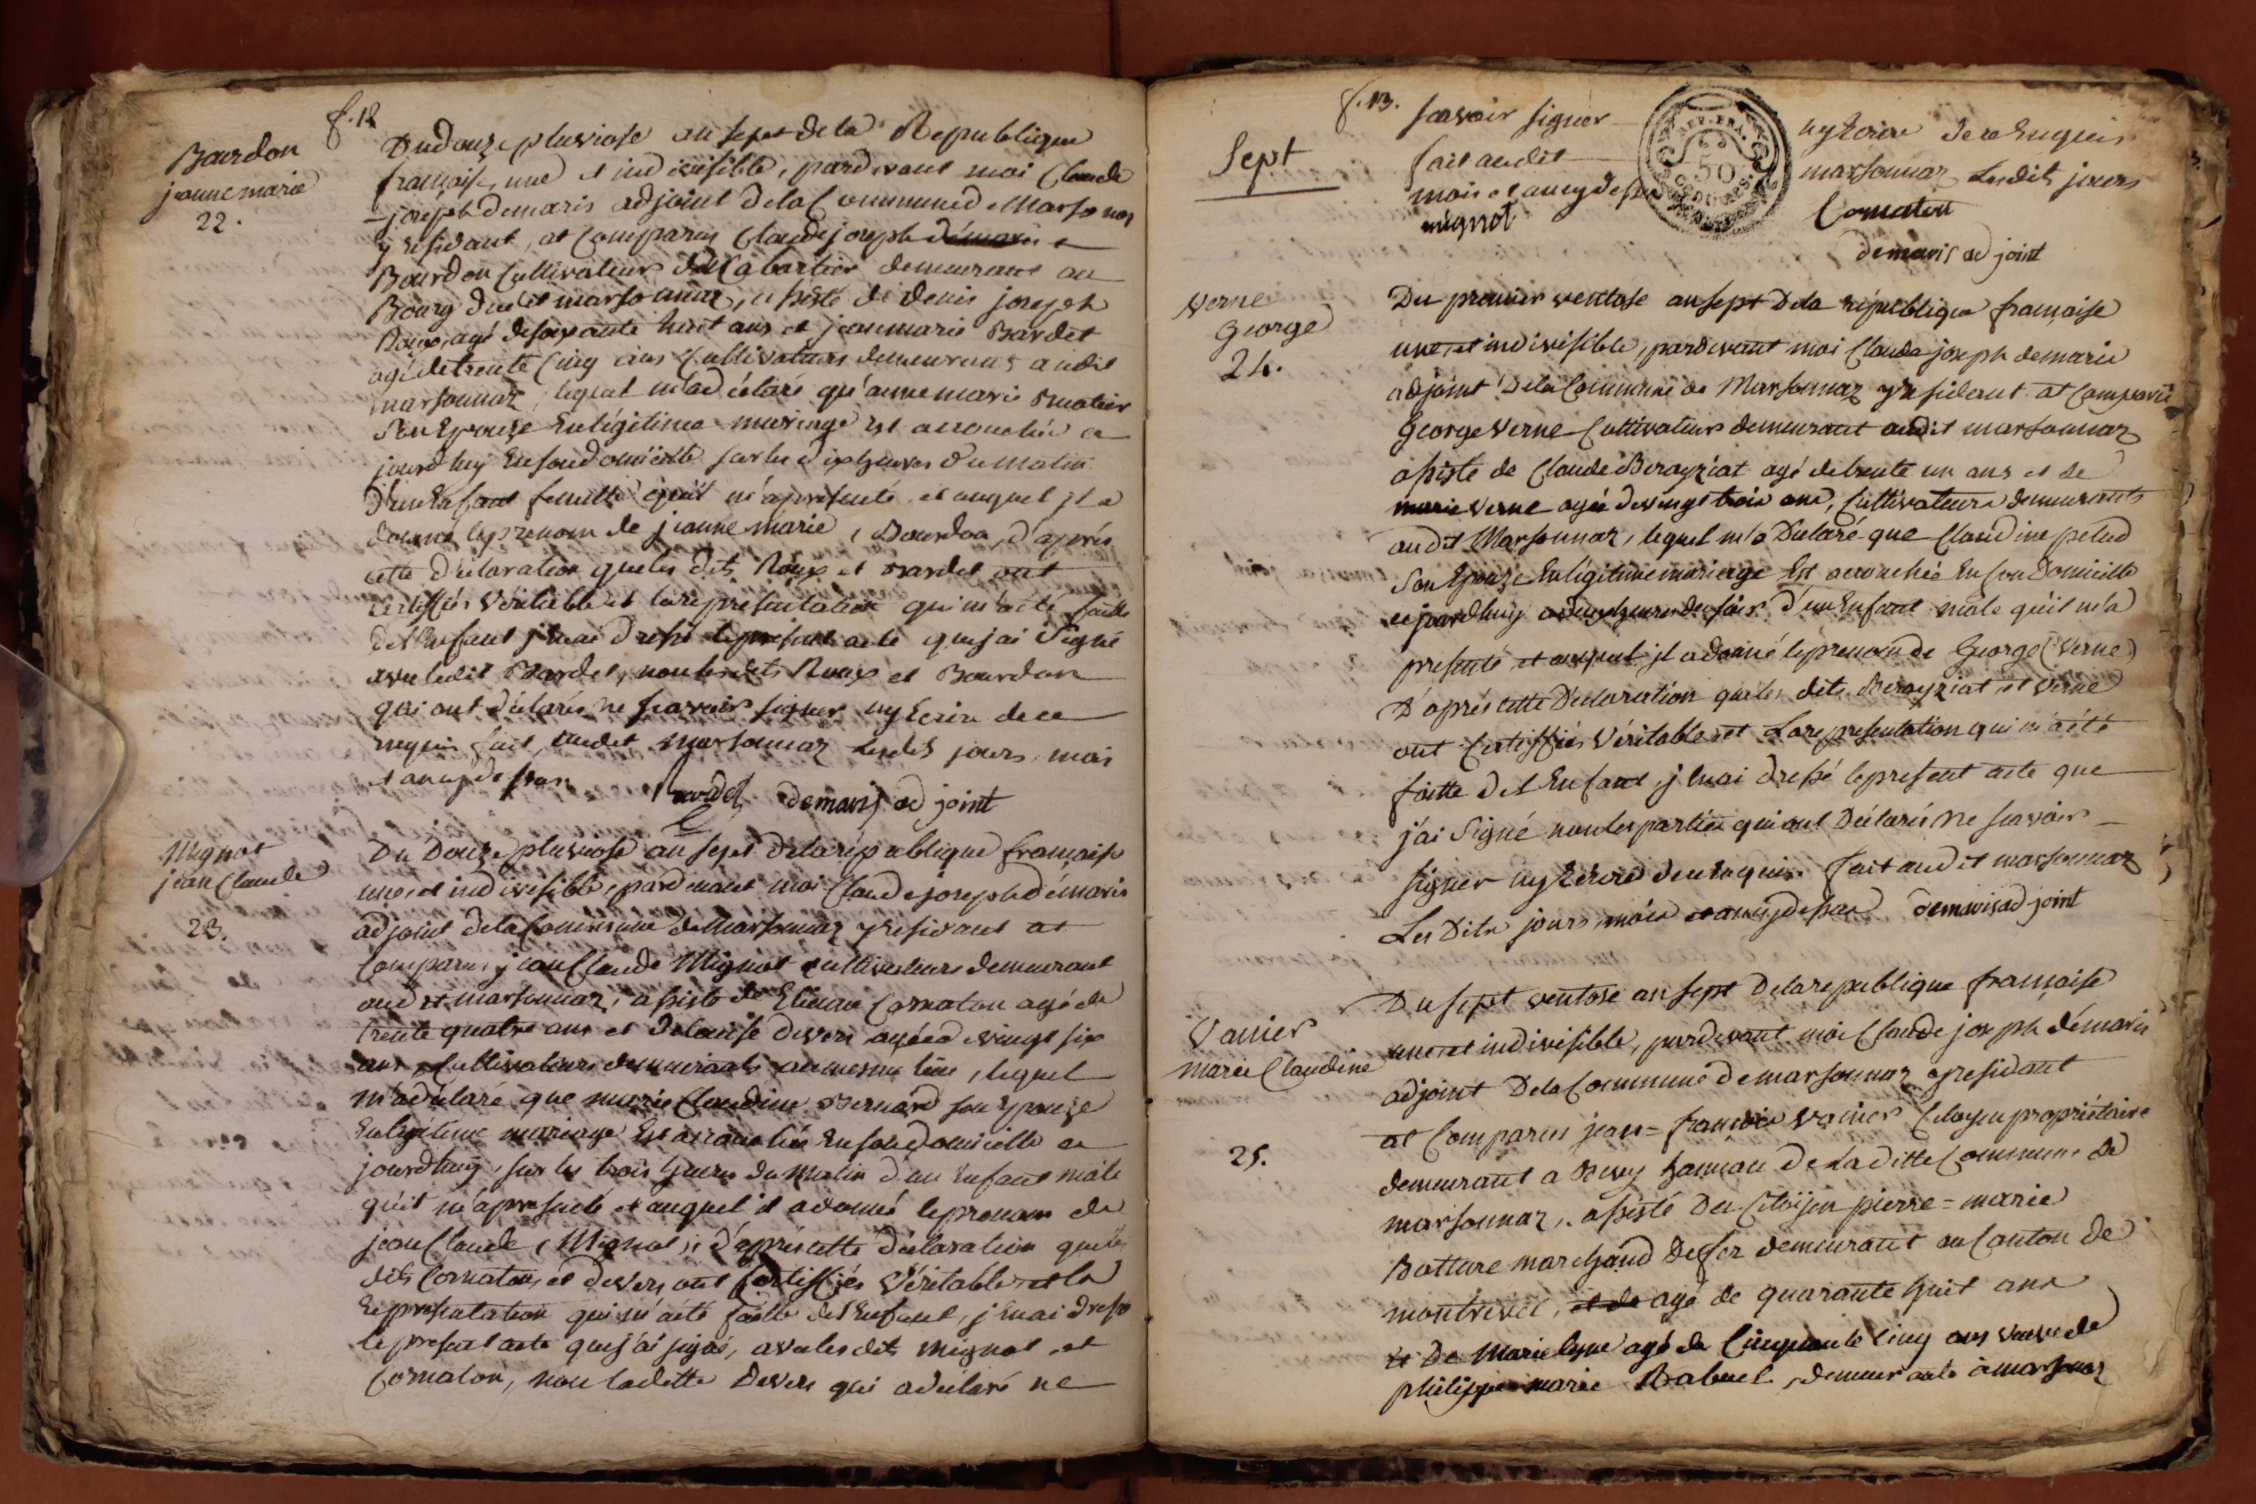 f. 12
Bourdon
jeanne marie
22.
Du douze pluviose an sept de la Republique
françoise, une et indivisible, pardevant moi Claude
joseph demaris adjoint de la Commune de Marsonnaz
y residant, at Comparus Claude joseph
Bourdon Cultivateur Cabartier demeurant au
Bourg dudit marsonnaz, assisté de denis joseph
Roux, agé de soixante huit ans et jean marie Bardet
agé de trente Cinq ans Cultivateurs demeurants audit
marsonnaz, lequel m'a déclaré qu'anne marie
Son Epouze En légitime mariage est accouchée ce
jourdhuy En son domicille sur les dix heures du matin
d'un Enfant femelle qu'il m'a presenté et auquel il a
donné le prenom de jeanne marie (Bourdon) d'après
cette déclaration que les dits Roux et Bardet ont
certiffiés Véritable et la representation qui m'a été faitte
de l'Enfant j'en ai dressé le present acte que j'ai Signé
avec ledit Bardet, non lesdits Roux et Bourdon
qui ont déclarés ne scavoir signer ny Ecrire de ce
requis fait audit Marsonnaz Lesdits jours, mois
et an cy dessus Bardet demaris adjoint
Mignot
jean Claude
23.
Du Douze pluviose an sept de la république françoise
une et indivisible, pardevant moi Claude joseph démaris
adjoint de la Commune de Marsonnaz y residant at
Comparus jean Claude Mignot cultivateur demeurant
audit marsonnaz, assisté de Etienne Cornaton agé de
trente quatre ans et de Louise devers agée de vingt six
ans, Cultivateurs demeurants au mesme lieu, lequel
m'a déclaré que marie Claudine Bernard son Epouze
En légitime mariage Est accouchée En son domicille ce
jourdhuy, sur les trois heures du Matin d'un Enfant male
qu'il m'a presenté et auquel il a donné le prenom de
jean Claude (Mignot), d'après cette déclaration que les
dits Cornaton et devers ont certiffiés Véritable et la
Representation qui m'a été faitte de l'Enfant, j'en ai dressé
le present acte que j'ai signé, avec les dits Mignot et
Cornaton, non ladette Devers qui a déclaré ne
f. 13.
Sept
scavoir signer ny Ecrire de ce Enquis
fait audit marsonnaz Lesdits jours
mois et an cy dessus Cornaton
mignot
REP. FRA.
50
demaris adjoint
Verne
George
24.
Du premier ventose an sept De la république françoise
une et indivisible, pardevant moi Claude joseph demaris
adjoint De la Commune de Marsonnaz y residant at Comparu
George Verne Cultivateur demeurant audit marsonnaz
assisté de Claude Berayziat agé de trente un ans et de
marie Verne agée de vingt trois ans, Cultivateurs demeurants
audit Marsonnaz, lequel m'a Déclaré que Claudine petud
Son Epouze En légitime mariage Est accouchée En son Domicille
ce jourdhuy a heures du soir d'un Enfant male qu'il m'a
presenté et auquel il a donné le prenom de George (Verne)
D'après cette Déclaration que les dits Berayziat et Verne
ont Certiffiés Véritable et La representation qui m'a été
faitte de l'Enfant, j'en ai dressé le present acte que
j'ai Signé non les parties qui ont Déclarés Ne scavoir
signer ny Ecrire de ce requis. fait audit marsonnaz
Les Dits jours mois et an cy dessus demaris adjoint
Vanier
marie Claudine
25.
Du sept ventose an sept De la republique françoise
une et indivisible, pardevant moi Claude joseph démaris
adjoint De la Commune de marsonnaz y residant
at Comparus jean=françois Vanier Citoyen propriétaire
demeurant a hamau De La ditte Commune de
marsonnaz, assisté Du Citoÿen pierre=marie
Batture marchand De fer demeurant au Canton de
montrevel, et de agé de quarante huit ans
et De Marie agé de Cinquante Cinq ans veuve de
philippe marie Babuel, demeurante a marsonnaz